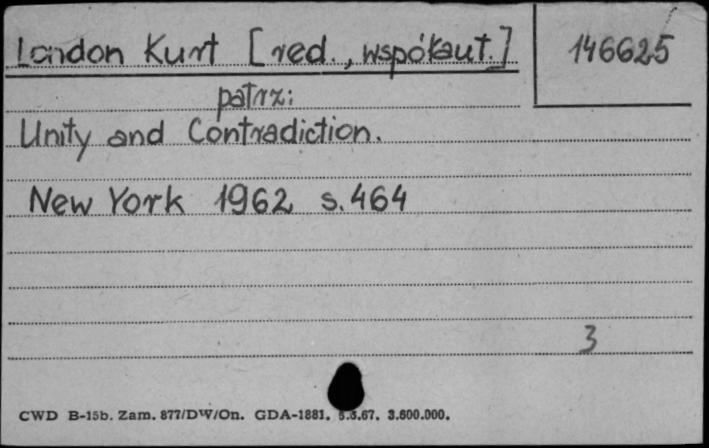 London Kurt [red., współaut.]
146625
patrz:
Unity and Contradiction.
New York 1962 s. 464
3
CWD B-15b. Zam. 877/DW/On. GDA-1881. 5.5.67. 3.600.000.